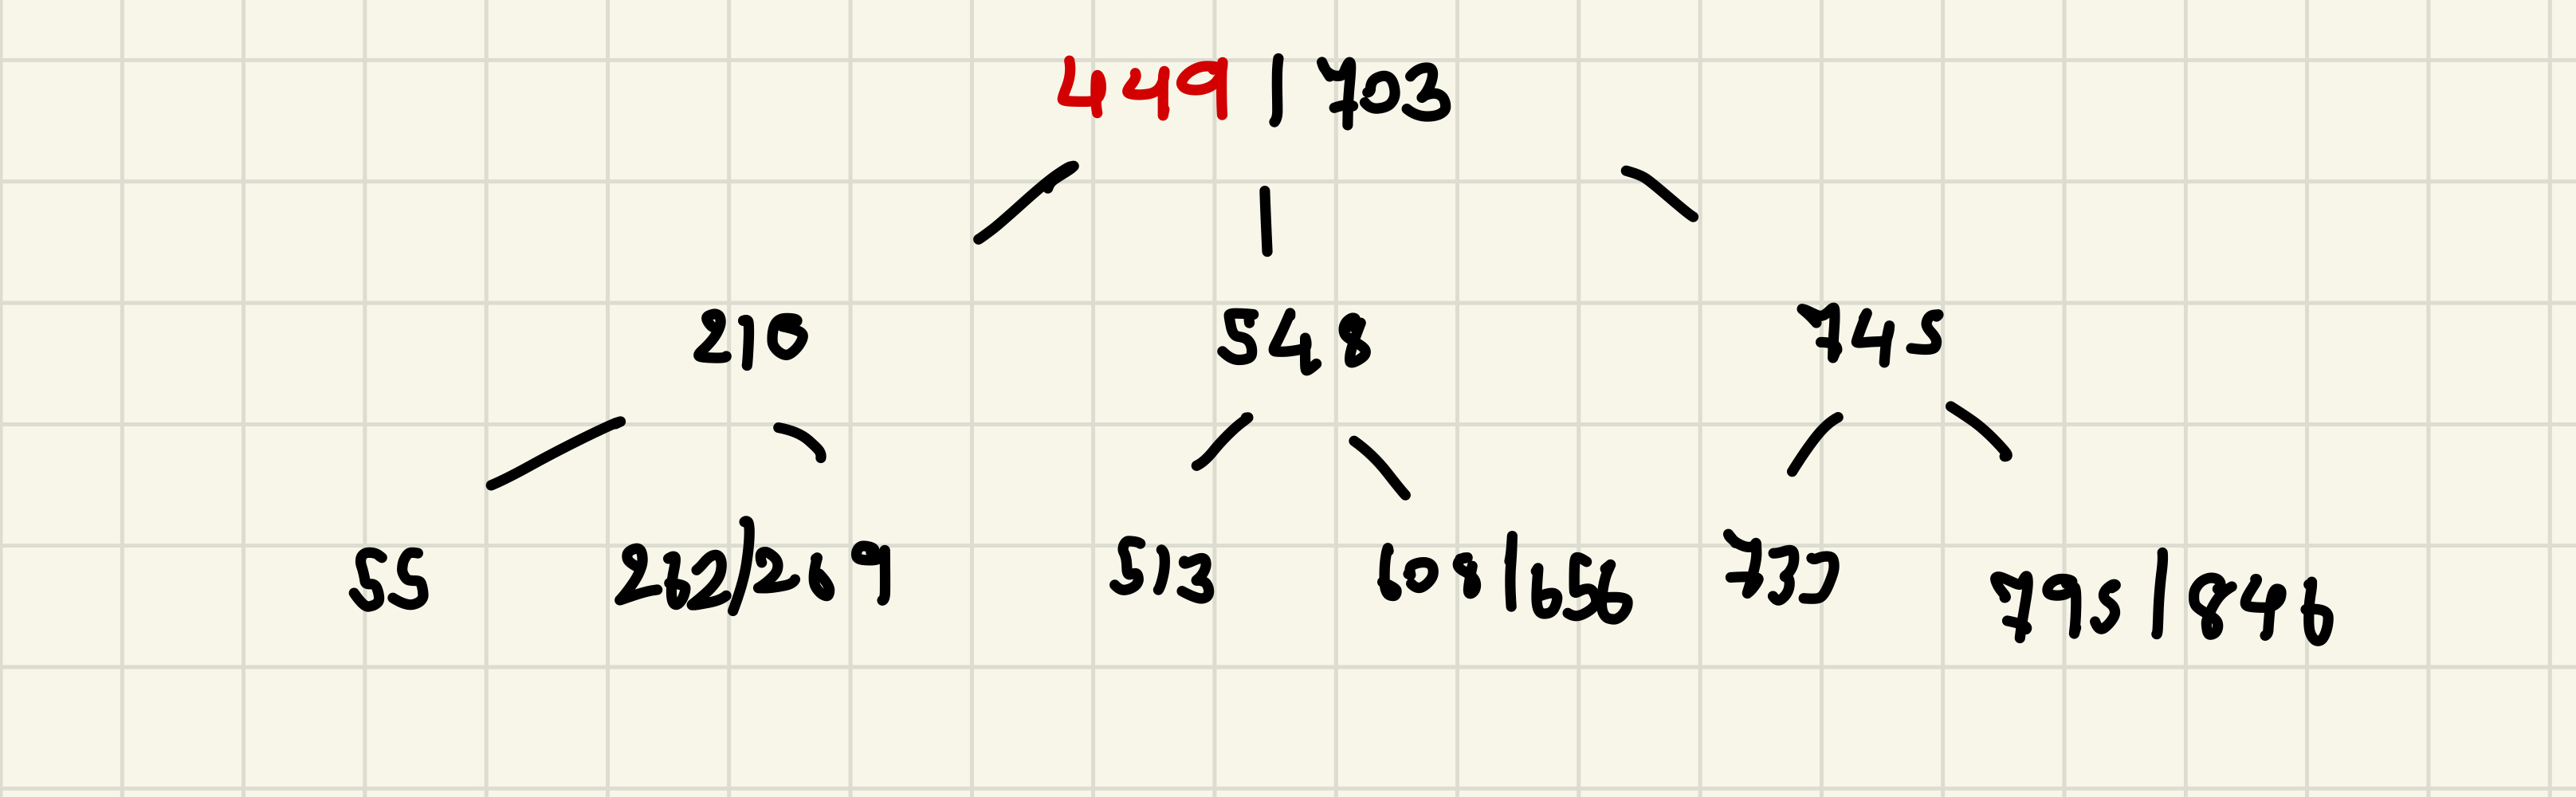 449 | 703
210 548 745
55 262/269 513 608|656 733 795|846